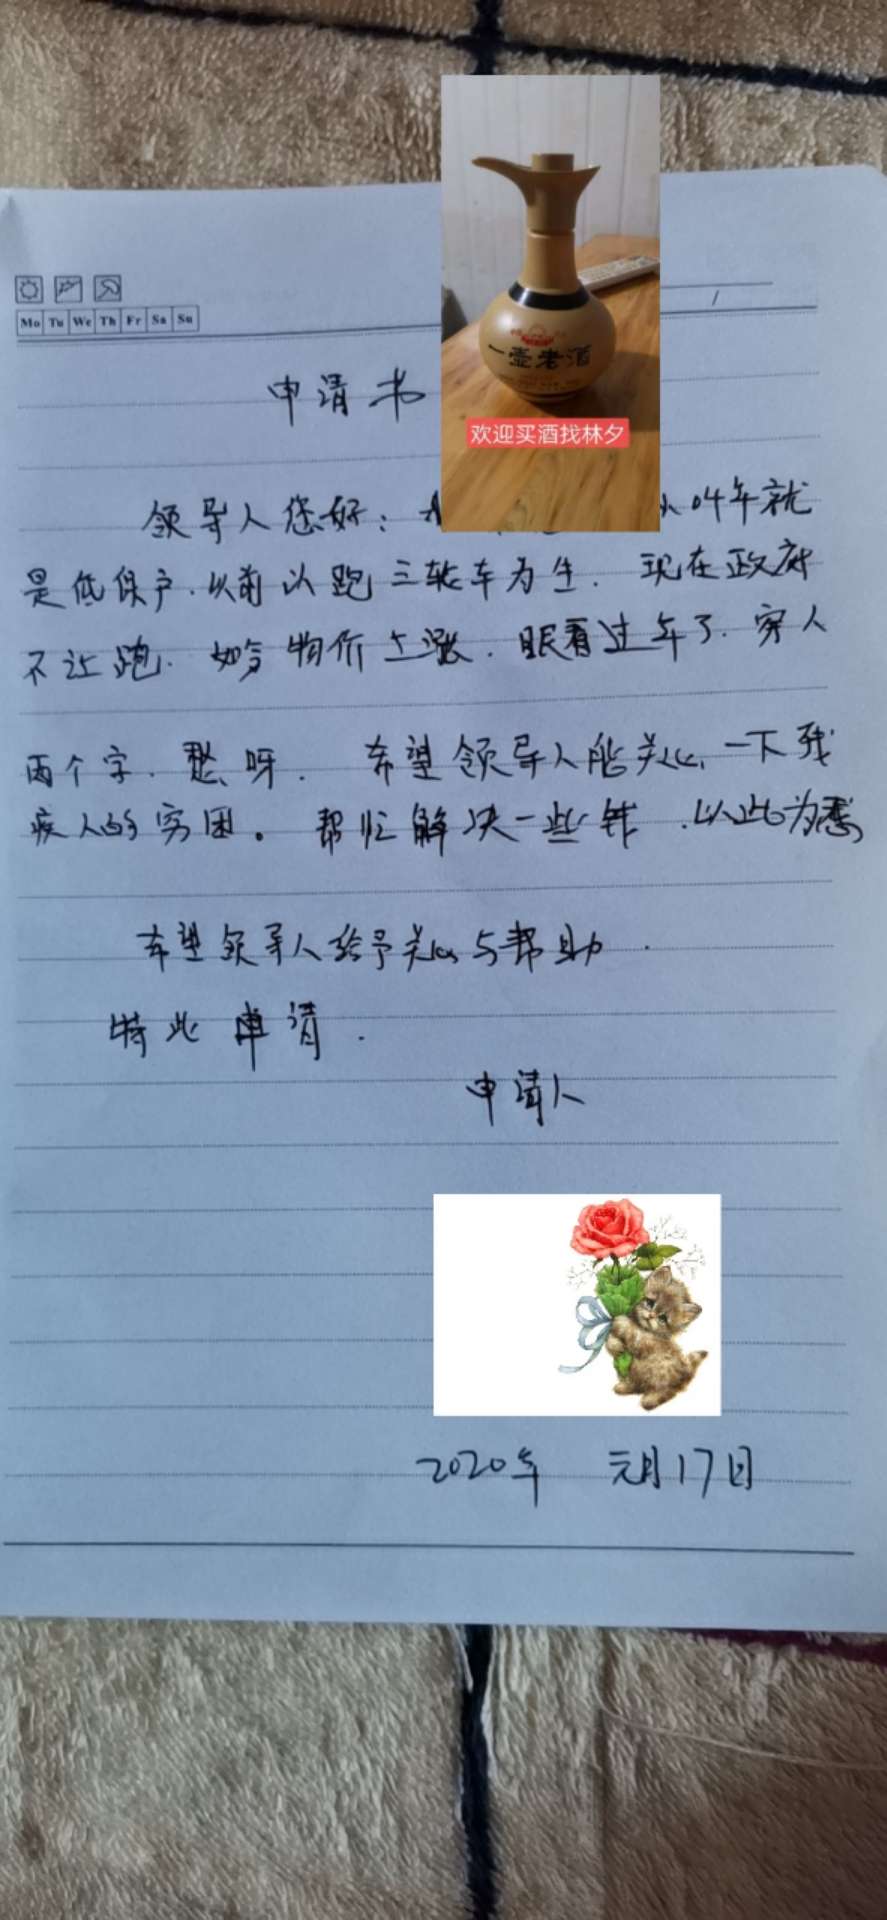 Mo Tu We Th Fr Sa Su
一壶老酒
欢迎买酒找林夕
申请书
领导人您好: 从04年就
是低保户.以前以跑三轮车为生. 现在政府
不让跑. 如今物价上涨. 眼看过年了. 穷人
两个字. 愁呀. 希望领导人能关心一下残
疾人的穷困。帮忙解决一些钱.以此为感
希望领导人给予关心与帮助.
特此申请.
申请人
2020年 元月17日